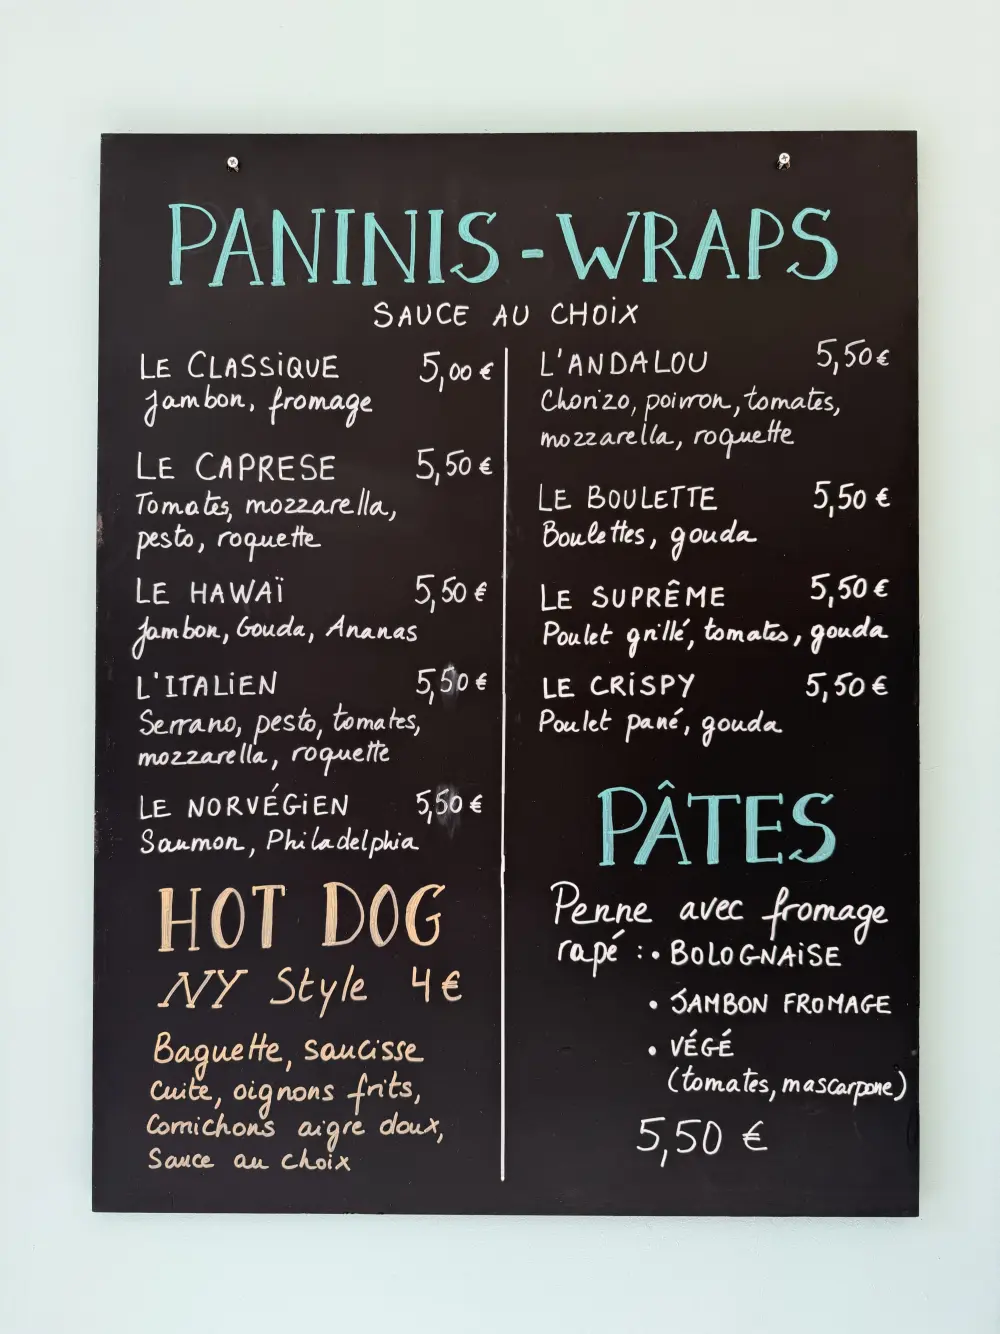 PANINIS - WRAPS
SAUCE AU CHOIX
LE CLASSIQUE 5,00 €
Jambon, fromage
LE CAPRESE 5,50 €
Tomates, mozzarella,
pesto, roquette
LE HAWAÏ 5,50 €
Jambon, Gouda, Ananas
L'ITALIEN 5,50 €
Serrano, pesto, tomates,
mozzarella, roquette
LE NORVÉGIEN 5,50 €
Saumon, Philadelphia
HOT DOG
NY Style 4 €
Baguette, saucisse
cuite, oignons frits,
Cornichons aigre doux,
Sauce au choix
L'ANDALOU 5,50 €
Chorizo, poivron, tomates,
mozzarella, roquette
LE BOULETTE 5,50 €
Boulettes, gouda
LE SUPRÊME 5,50 €
Poulet grillé, tomates, gouda
LE CRISPY 5,50 €
Poulet pané, gouda
PÂTES
Penne avec fromage
rapé : • BOLOGNAISE
• JAMBON FROMAGE
• VÉGÉ
(tomates, mascarpone)
5,50 €